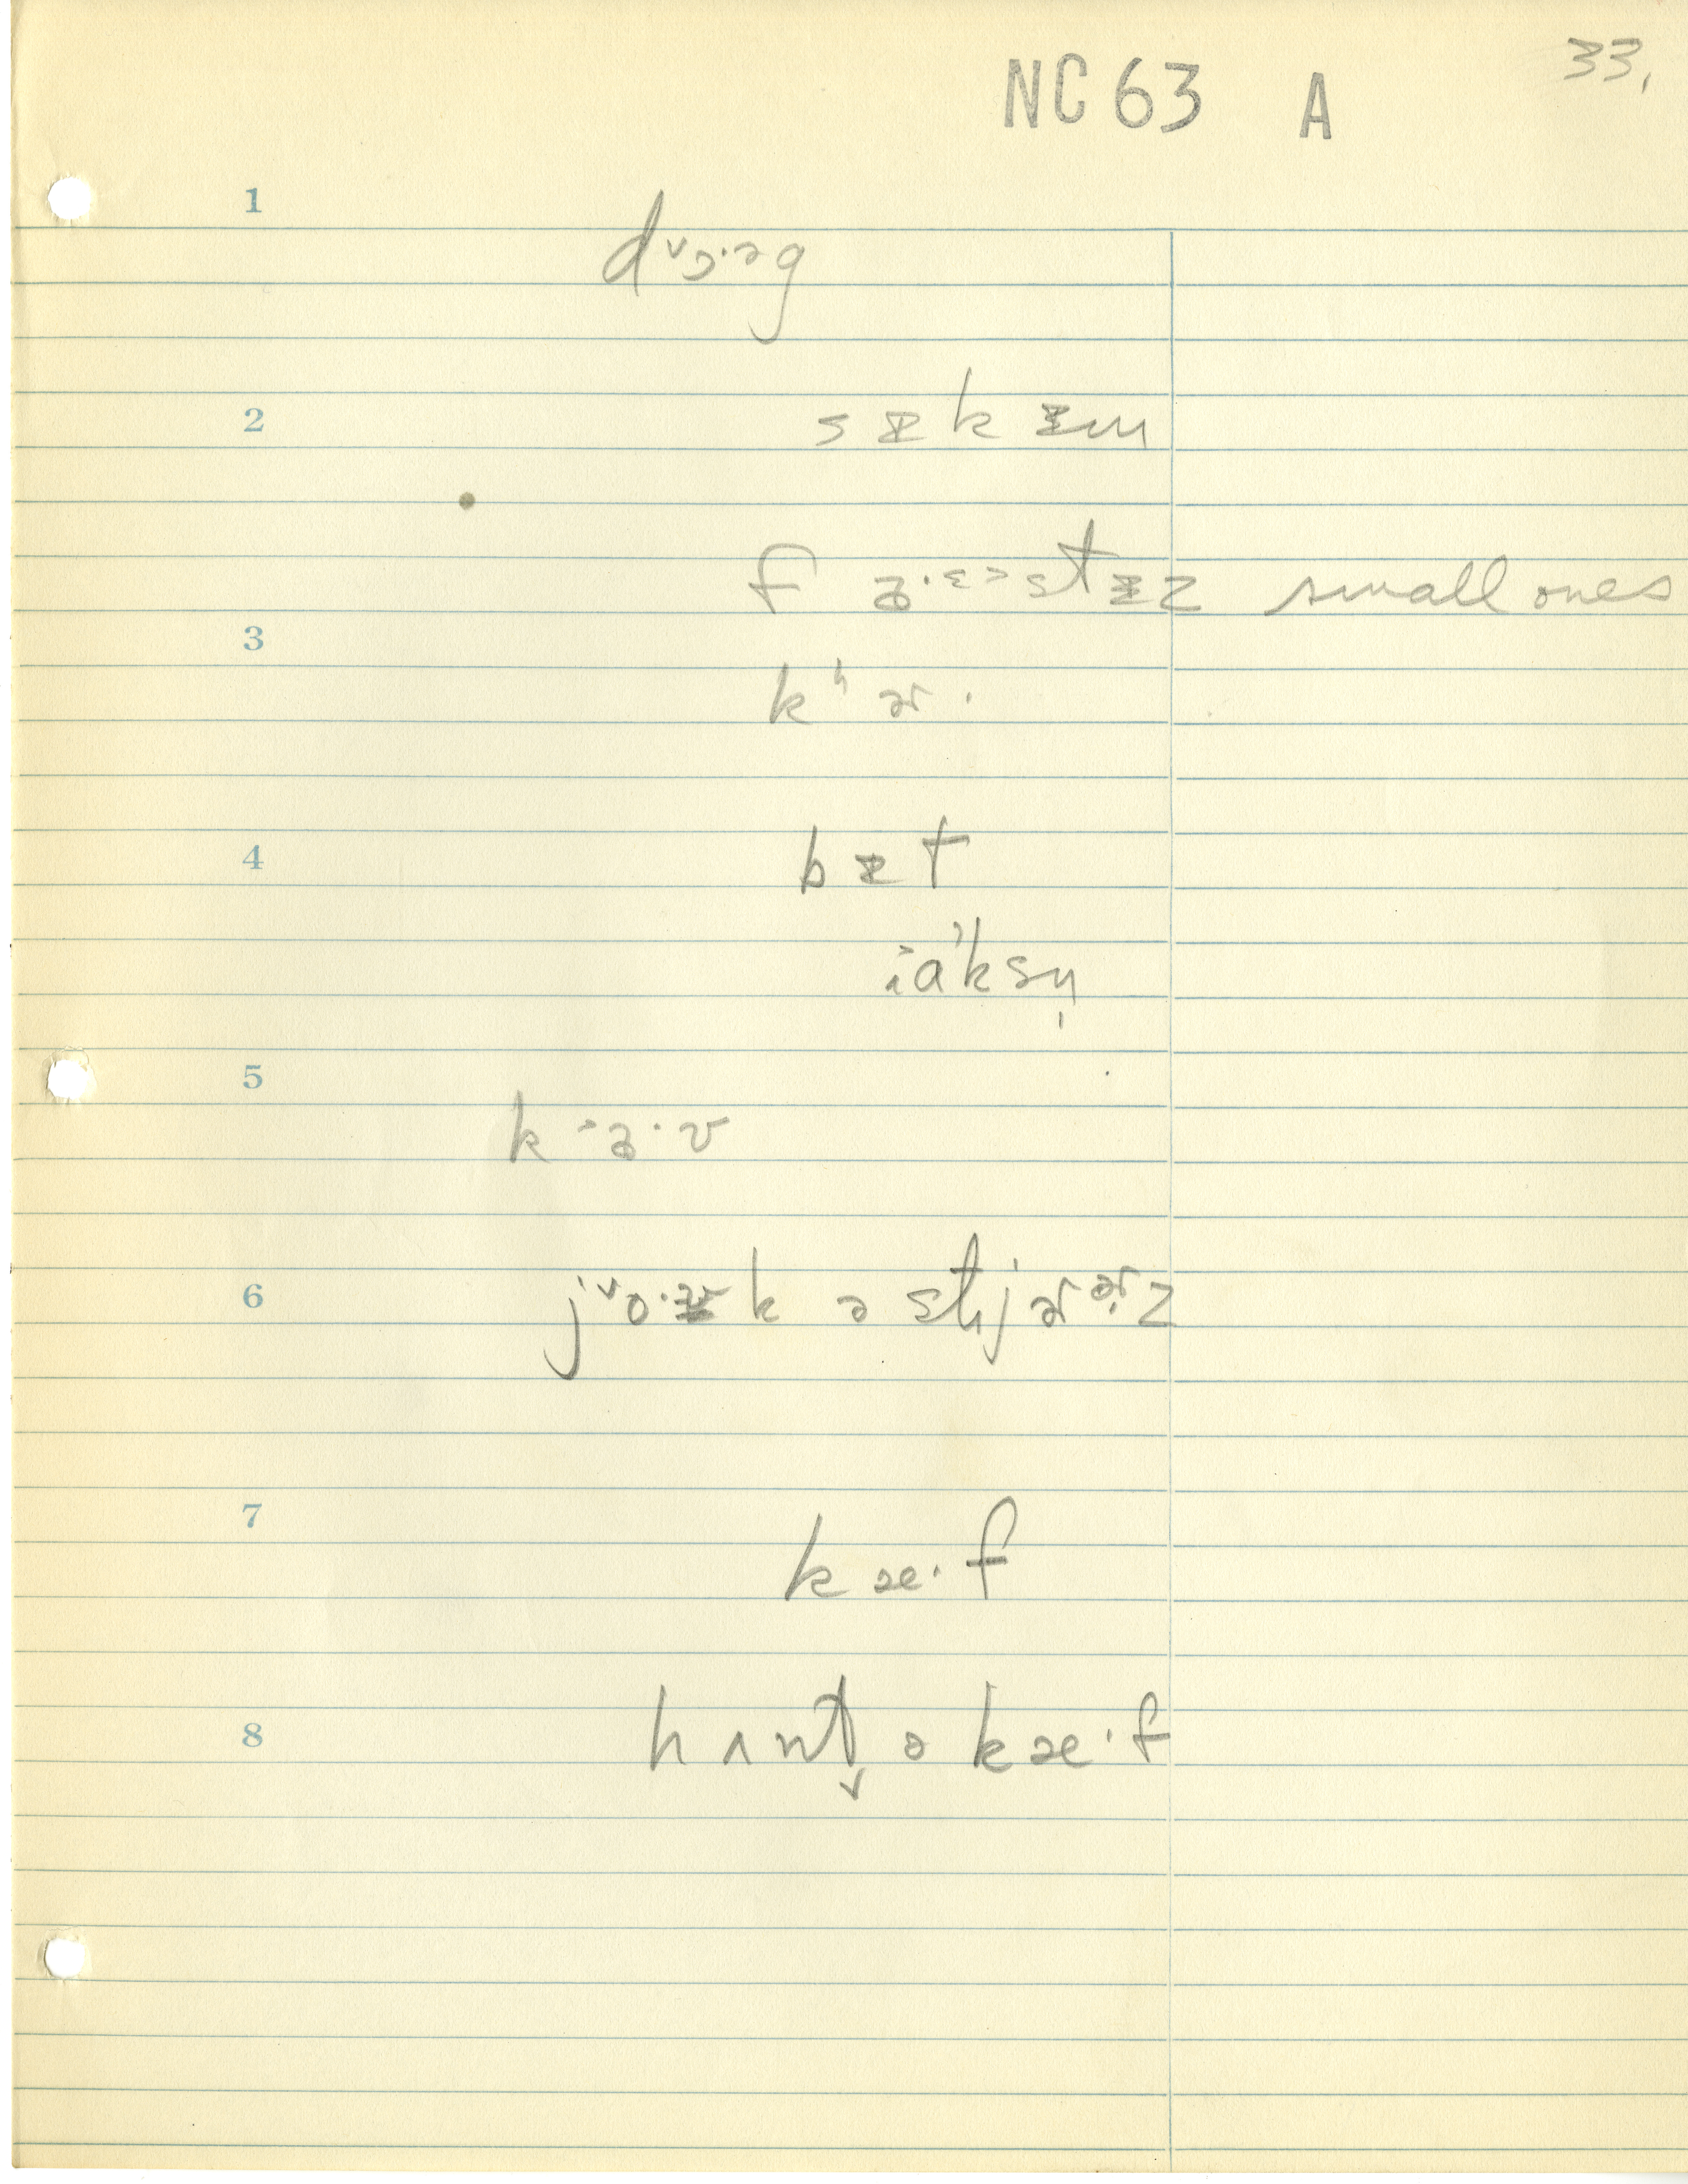 33.
NC 63 A
1
dᵛɔ·əg
2
sɪkɪm
fɜ·ᵋ˃stɪz small ones
3
kʰɚ·
4
bɪt
i˃a˃ksn̩
5
k˃ɜ·v
6
jᵛo·k ə stijɚɚz
7
kæ·f
8
hʌnt̬ ə kæ·f